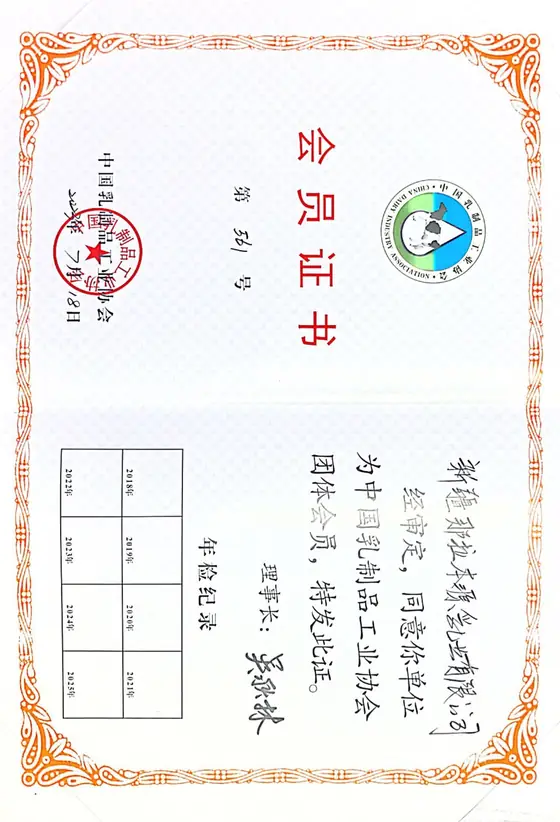 中国乳制品工业协会
CHINA DAIRY INDUSTRY ASSOCIATION
会员证书
第 561 号
中国乳制品工业协会
7月18日
经审定，同意你单位
为中国乳制品工业协会
团体会员，特发此证。
理事长：
年检纪录
2018年 2019年 2020年 2021年
2022年 2023年 2024年 2025年